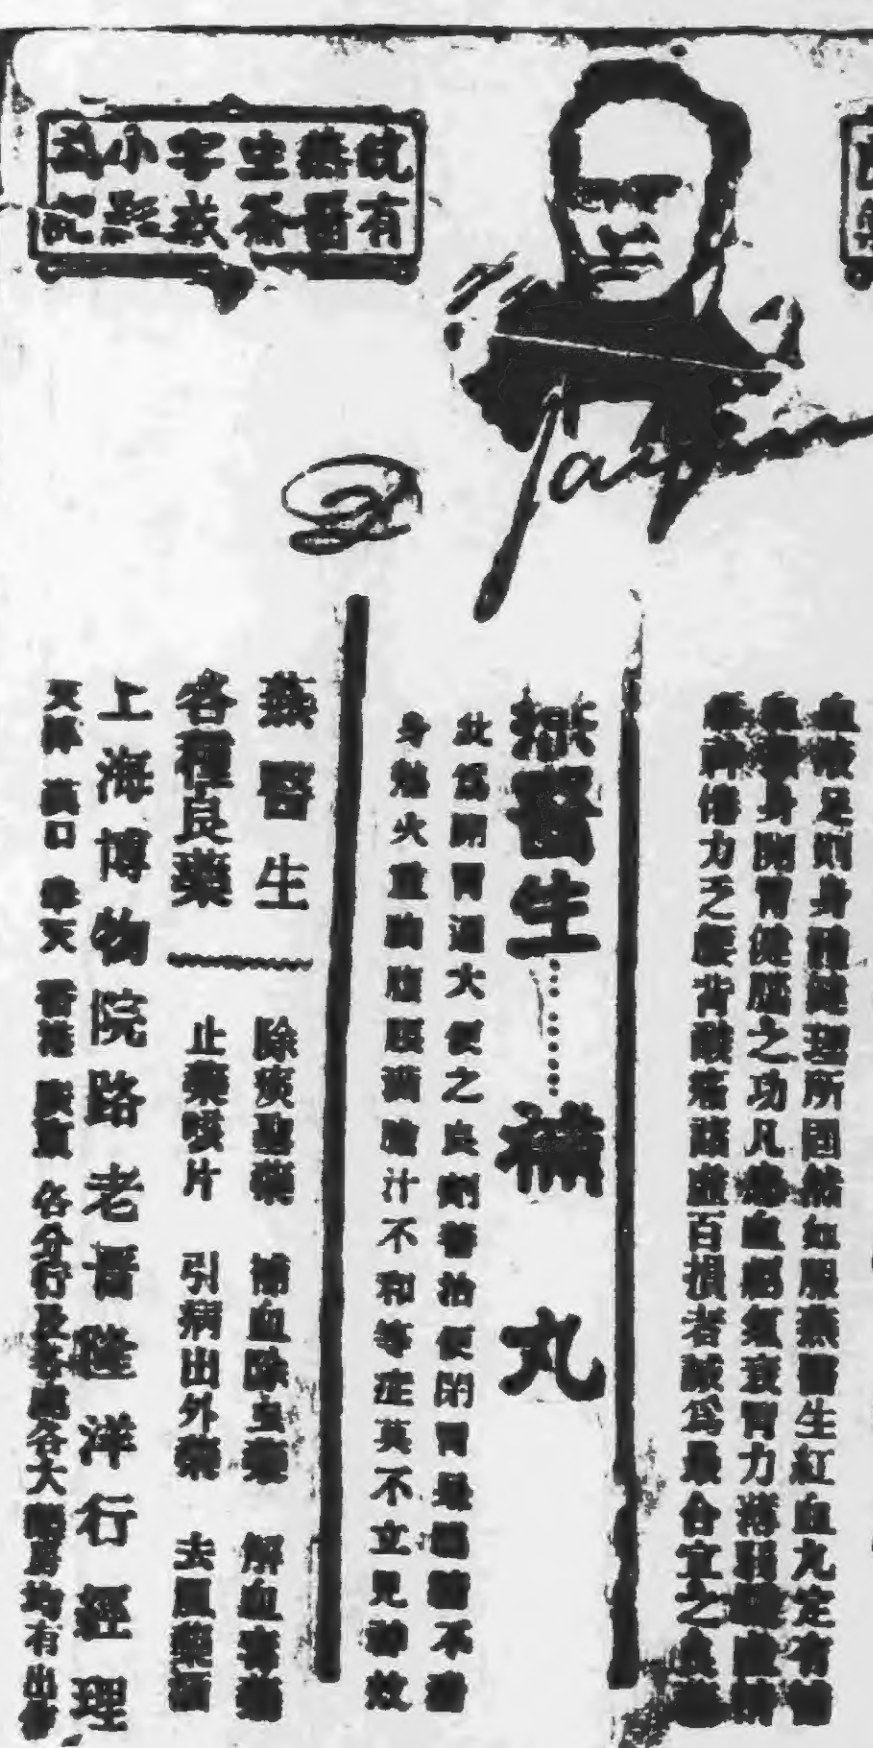 有燕醫生簽字或小影為記
血液足則身體健理所固然如服燕醫生紅血丸定有補
血強身開胃健腦之功凡患血虧氣衰胃力薄弱虛
精神倦力乏腰背酸痛諸虛百損者為最合宜之良藥
燕醫生……補丸
此為開胃通大便之良劑善治便閉胃呆頭不清
身熱火重胸腹脹滿膽汁不和等症莫不立見神效
燕醫生
各種良藥
除痰聖藥 補血除虫藥 解血毒藥
止咳片 引病出外藥 去風藥酒
上海博物院路老晉隆洋行經理
天津 漢口 奉天 香港 各分行及各處各大藥房均有出售